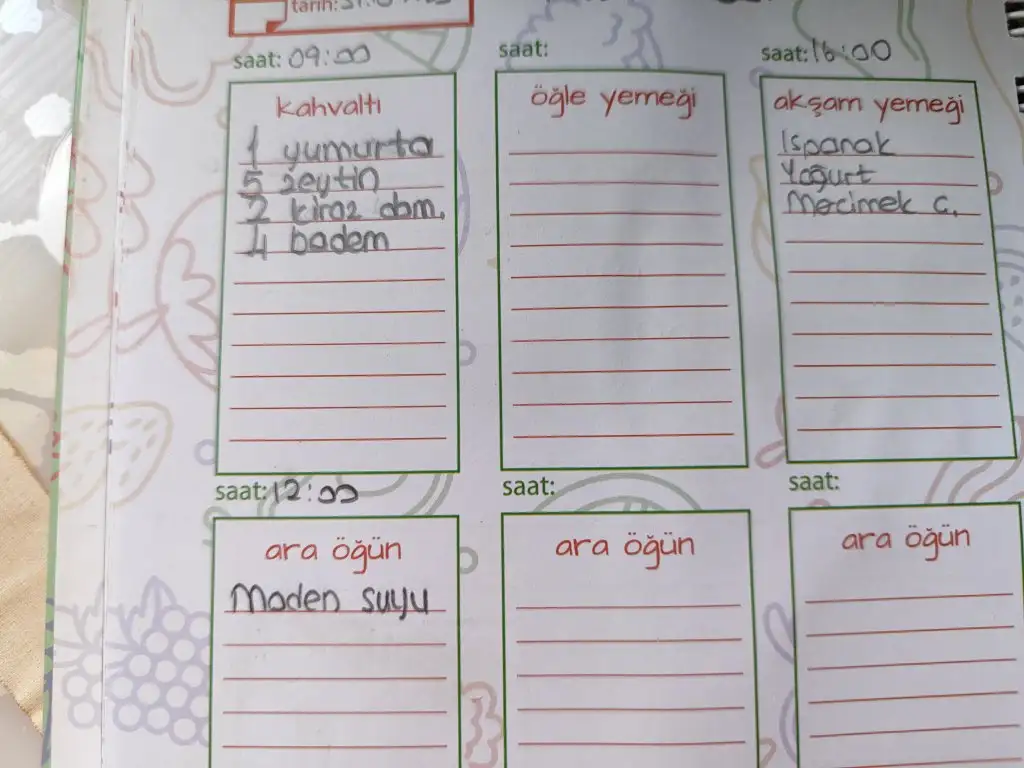 tarih:
saat: 09:00
kahvaltı
1 yumurta
5 zeytin
2 kiraz dom.
4 badem
saat:
öğle yemeği
saat: 16:00
akşam yemeği
Ispanak
Yoğurt
Mercimek ç.
saat: 12:00
ara öğün
Maden suyu
saat:
ara öğün
saat:
ara öğün